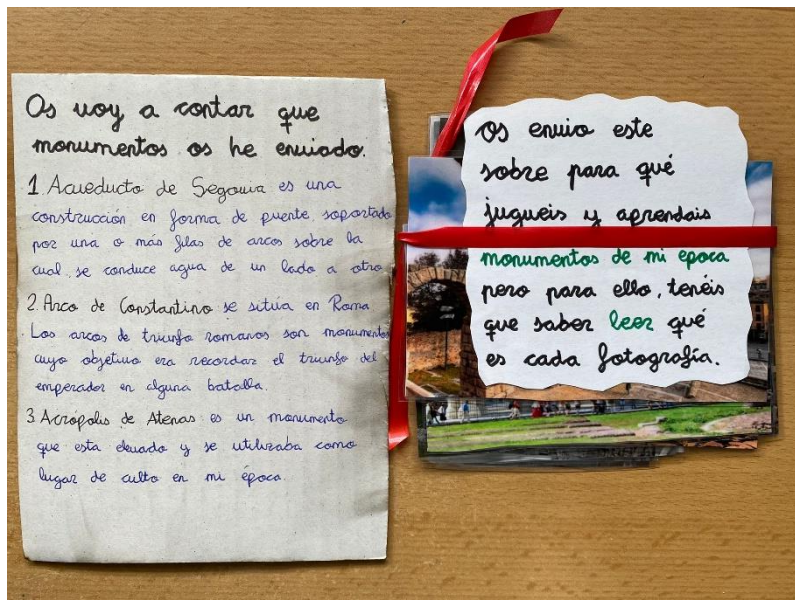 Os voy a contar que
monumentos os he enviado.
1. Acueducto de Segovia es una
construcción en forma de puente, soportado
por una o más filas de arcos sobre la
cual, se conduce agua de un lado a otro
2. Arco de Constantino se sitúa en Roma
Los arcos de triunfo romanos son monumentos
cuyo objetivo era recordar el triunfo del
emperador en alguna batalla.
3. Acrópolis de Atenas es un monumento
que esta elevado y se utilizaba como
lugar de culto en mi época.
Os envio este
sobre para qué
jugueis y aprendais
monumentos de mi epoca
pero para ello, tenéis
que saber leer qué
es cada fotografía.